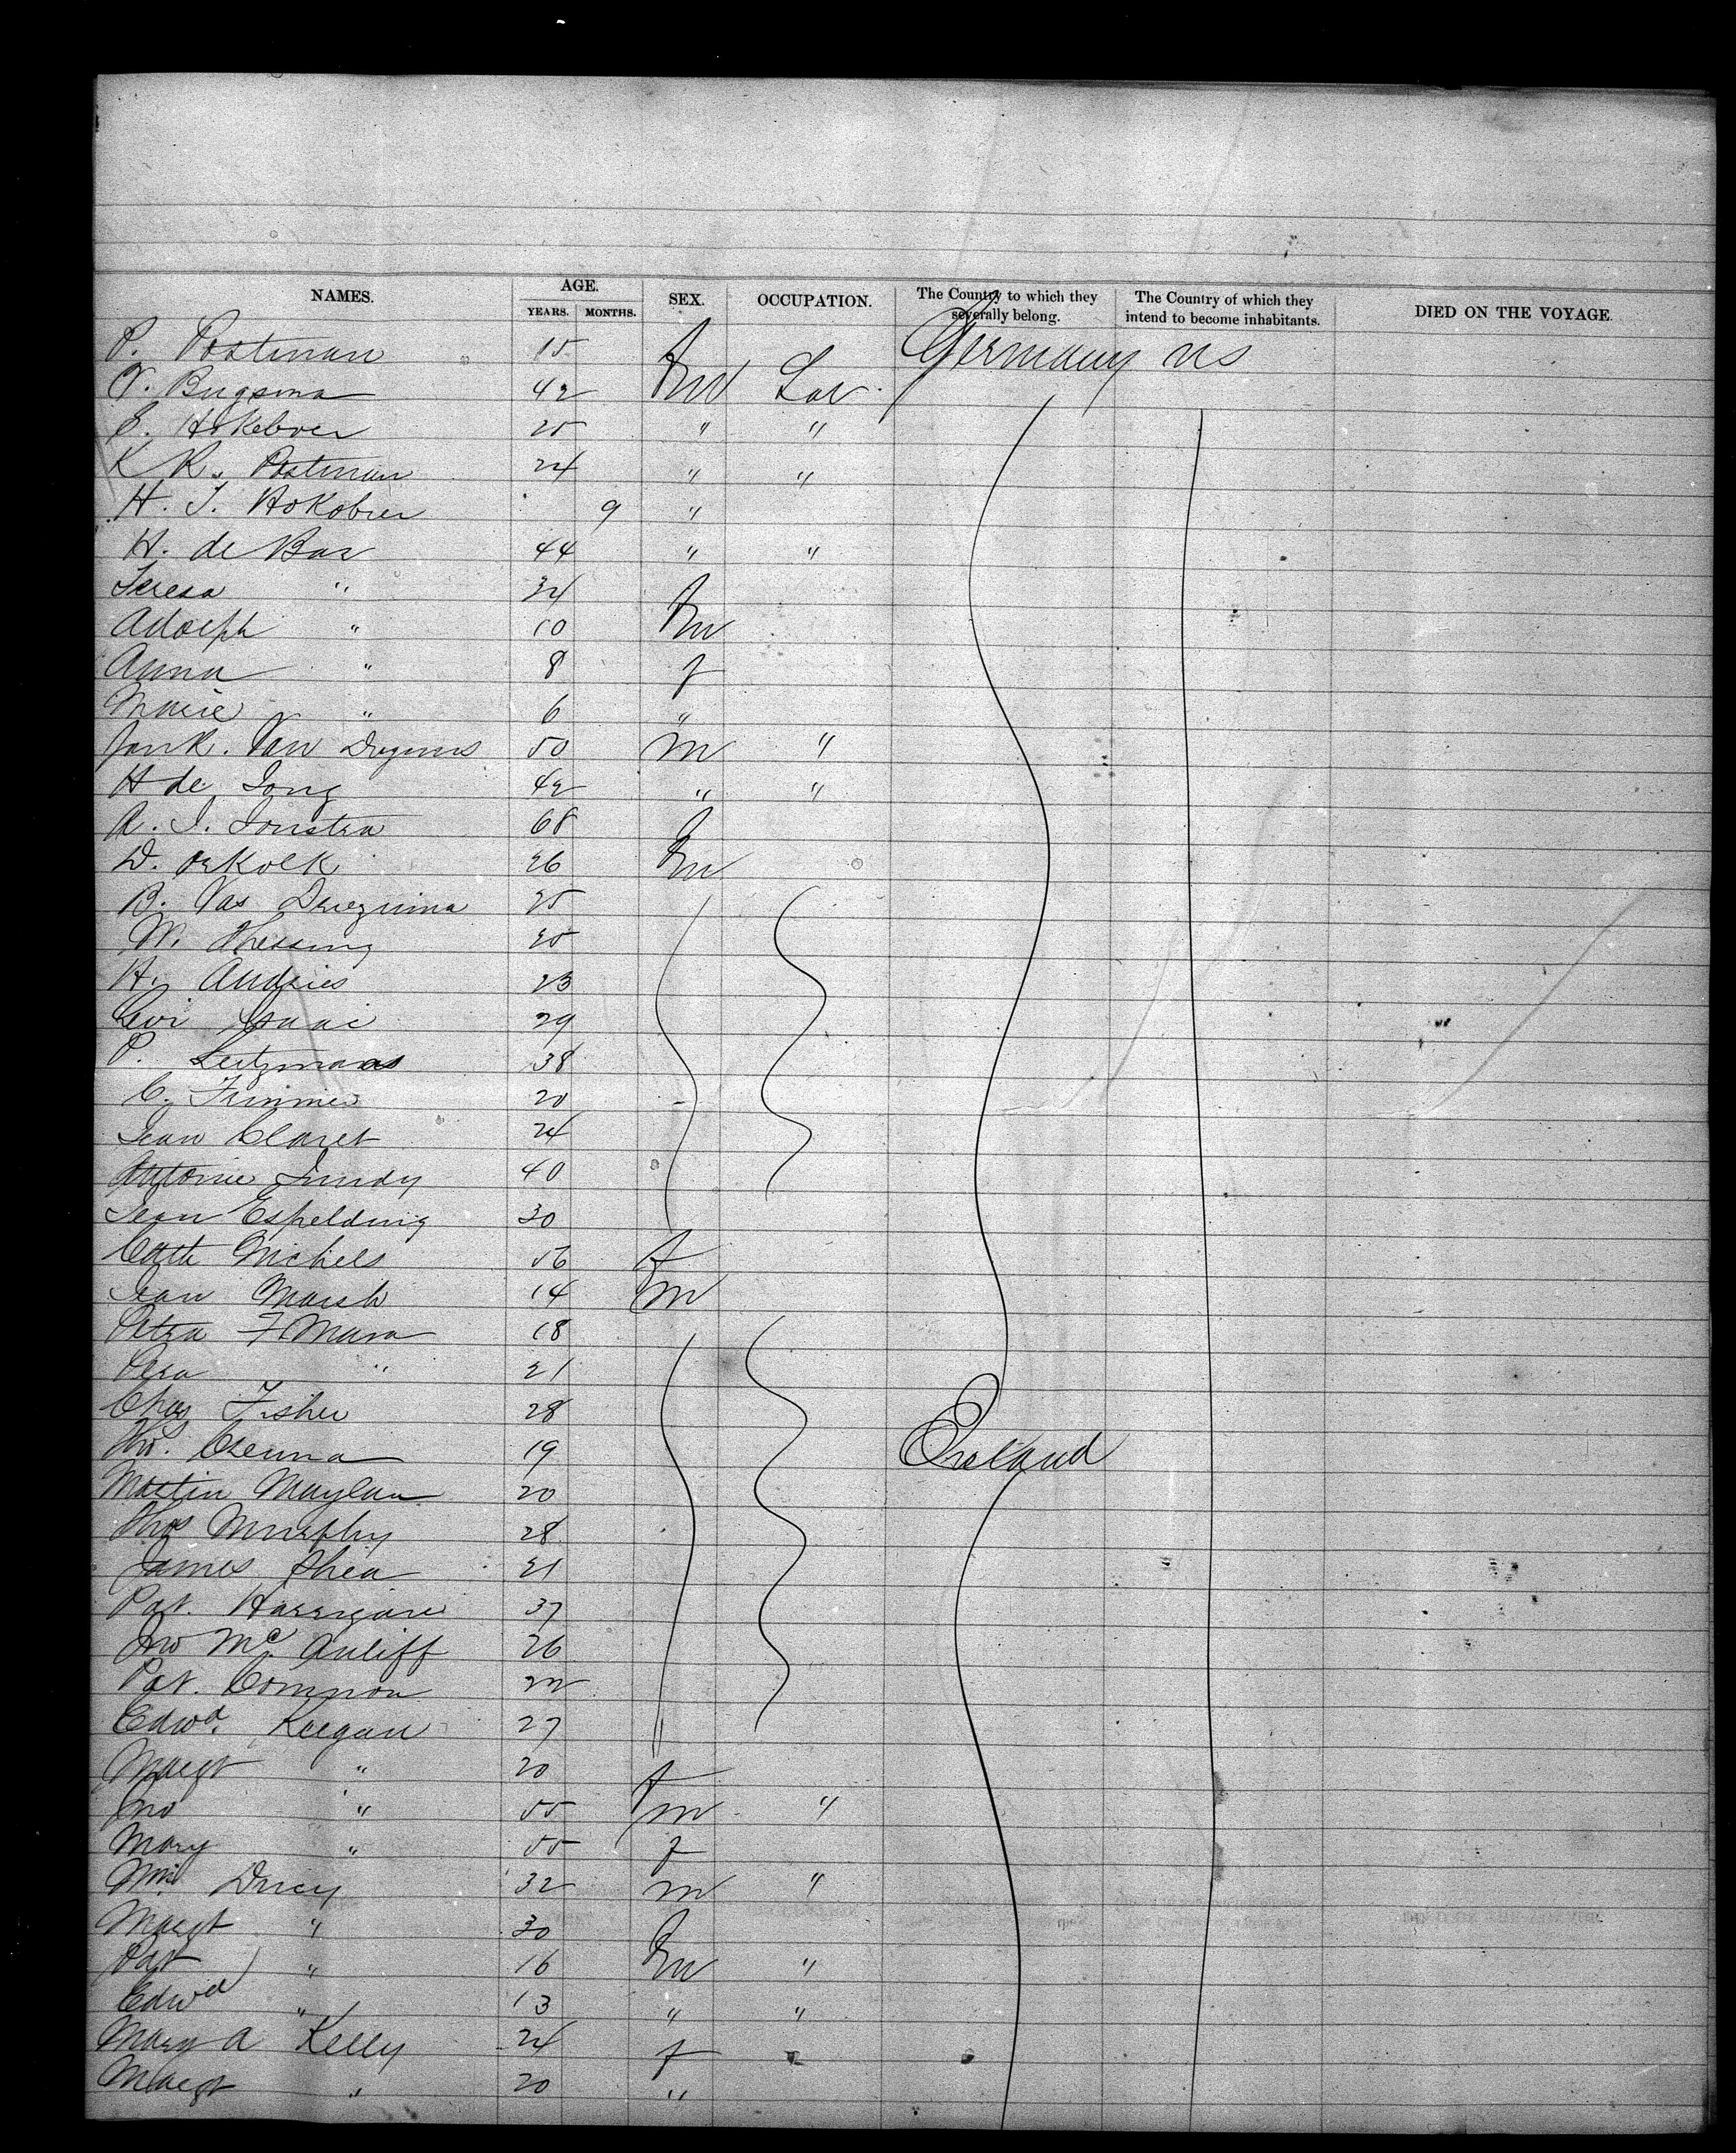 NAMES. AGE. SEX. OCCUPATION. The Country to which they severally belong. The Country of which they intend to become inhabitants. DIED ON THE VOYAGE.
YEARS. MONTHS.
P. Postman 15 f Germany us
Bugsma 42 m Lab
25 " "
K R. Postman 24 " "
H. J. Hokobier 9 "
H. de Bar 44 " "
Teresa " 34 f
Adolph " 10 m
Anna " 8 f
Marie " 6 "
Van 50 m "
H de Jong 42 " "
A. J. Jonstra 68 f
D. 26 m
B. Vas 25
W. Hessing 25
H. Andries 23
Levi Isaac 29
P. 38
C. 20
Jean Claret 24
Antoine 40
Jean Espelding 30
Cath Michels 56 f
Jean Marsh 14 m
Petra F Mara 18
" 21
Chas Fisher 28
Tho. 19 Ireland
Martin Maylan 20
Thos Murphy 28
James Shea 21
Pat. Harrigan 37
Jno McAuliff 26
Pat. Common 22
Edwd. Keegan 27 "
Margt " 20 f
Jno " 55 m "
Mary " 55 f
Wm. Darcy 32 m "
Margt " 30 f
Pat " 16 m "
Edwd " 13 " "
Mary A Kelly 24 f
Margt " 20 "